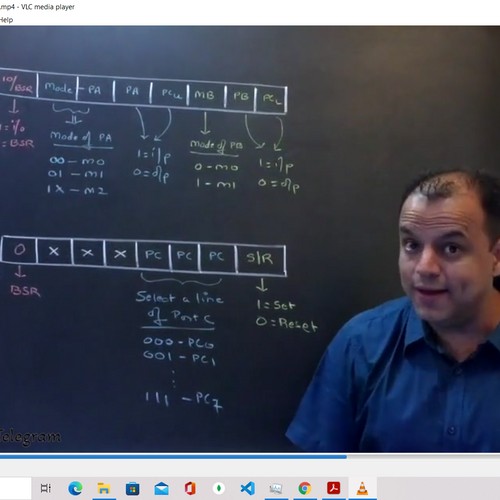 .mp4 - VLC media player
Help
IO/BSR Mode-PA PA PCu MB PB PCL
1 = I/O
= BSR
Mode of PA
00 - M0
01 - M1
1X - M2
1 = i/p
0 = o/p
Mode of PB
0 - M0
1 - M1
1 = i/p
0 = o/p
0 X X X PC PC PC S/R
BSR
Select a line
of Port C
000 - PC0
001 - PC1
111 - PC7
1 = Set
0 = Reset
Telegram